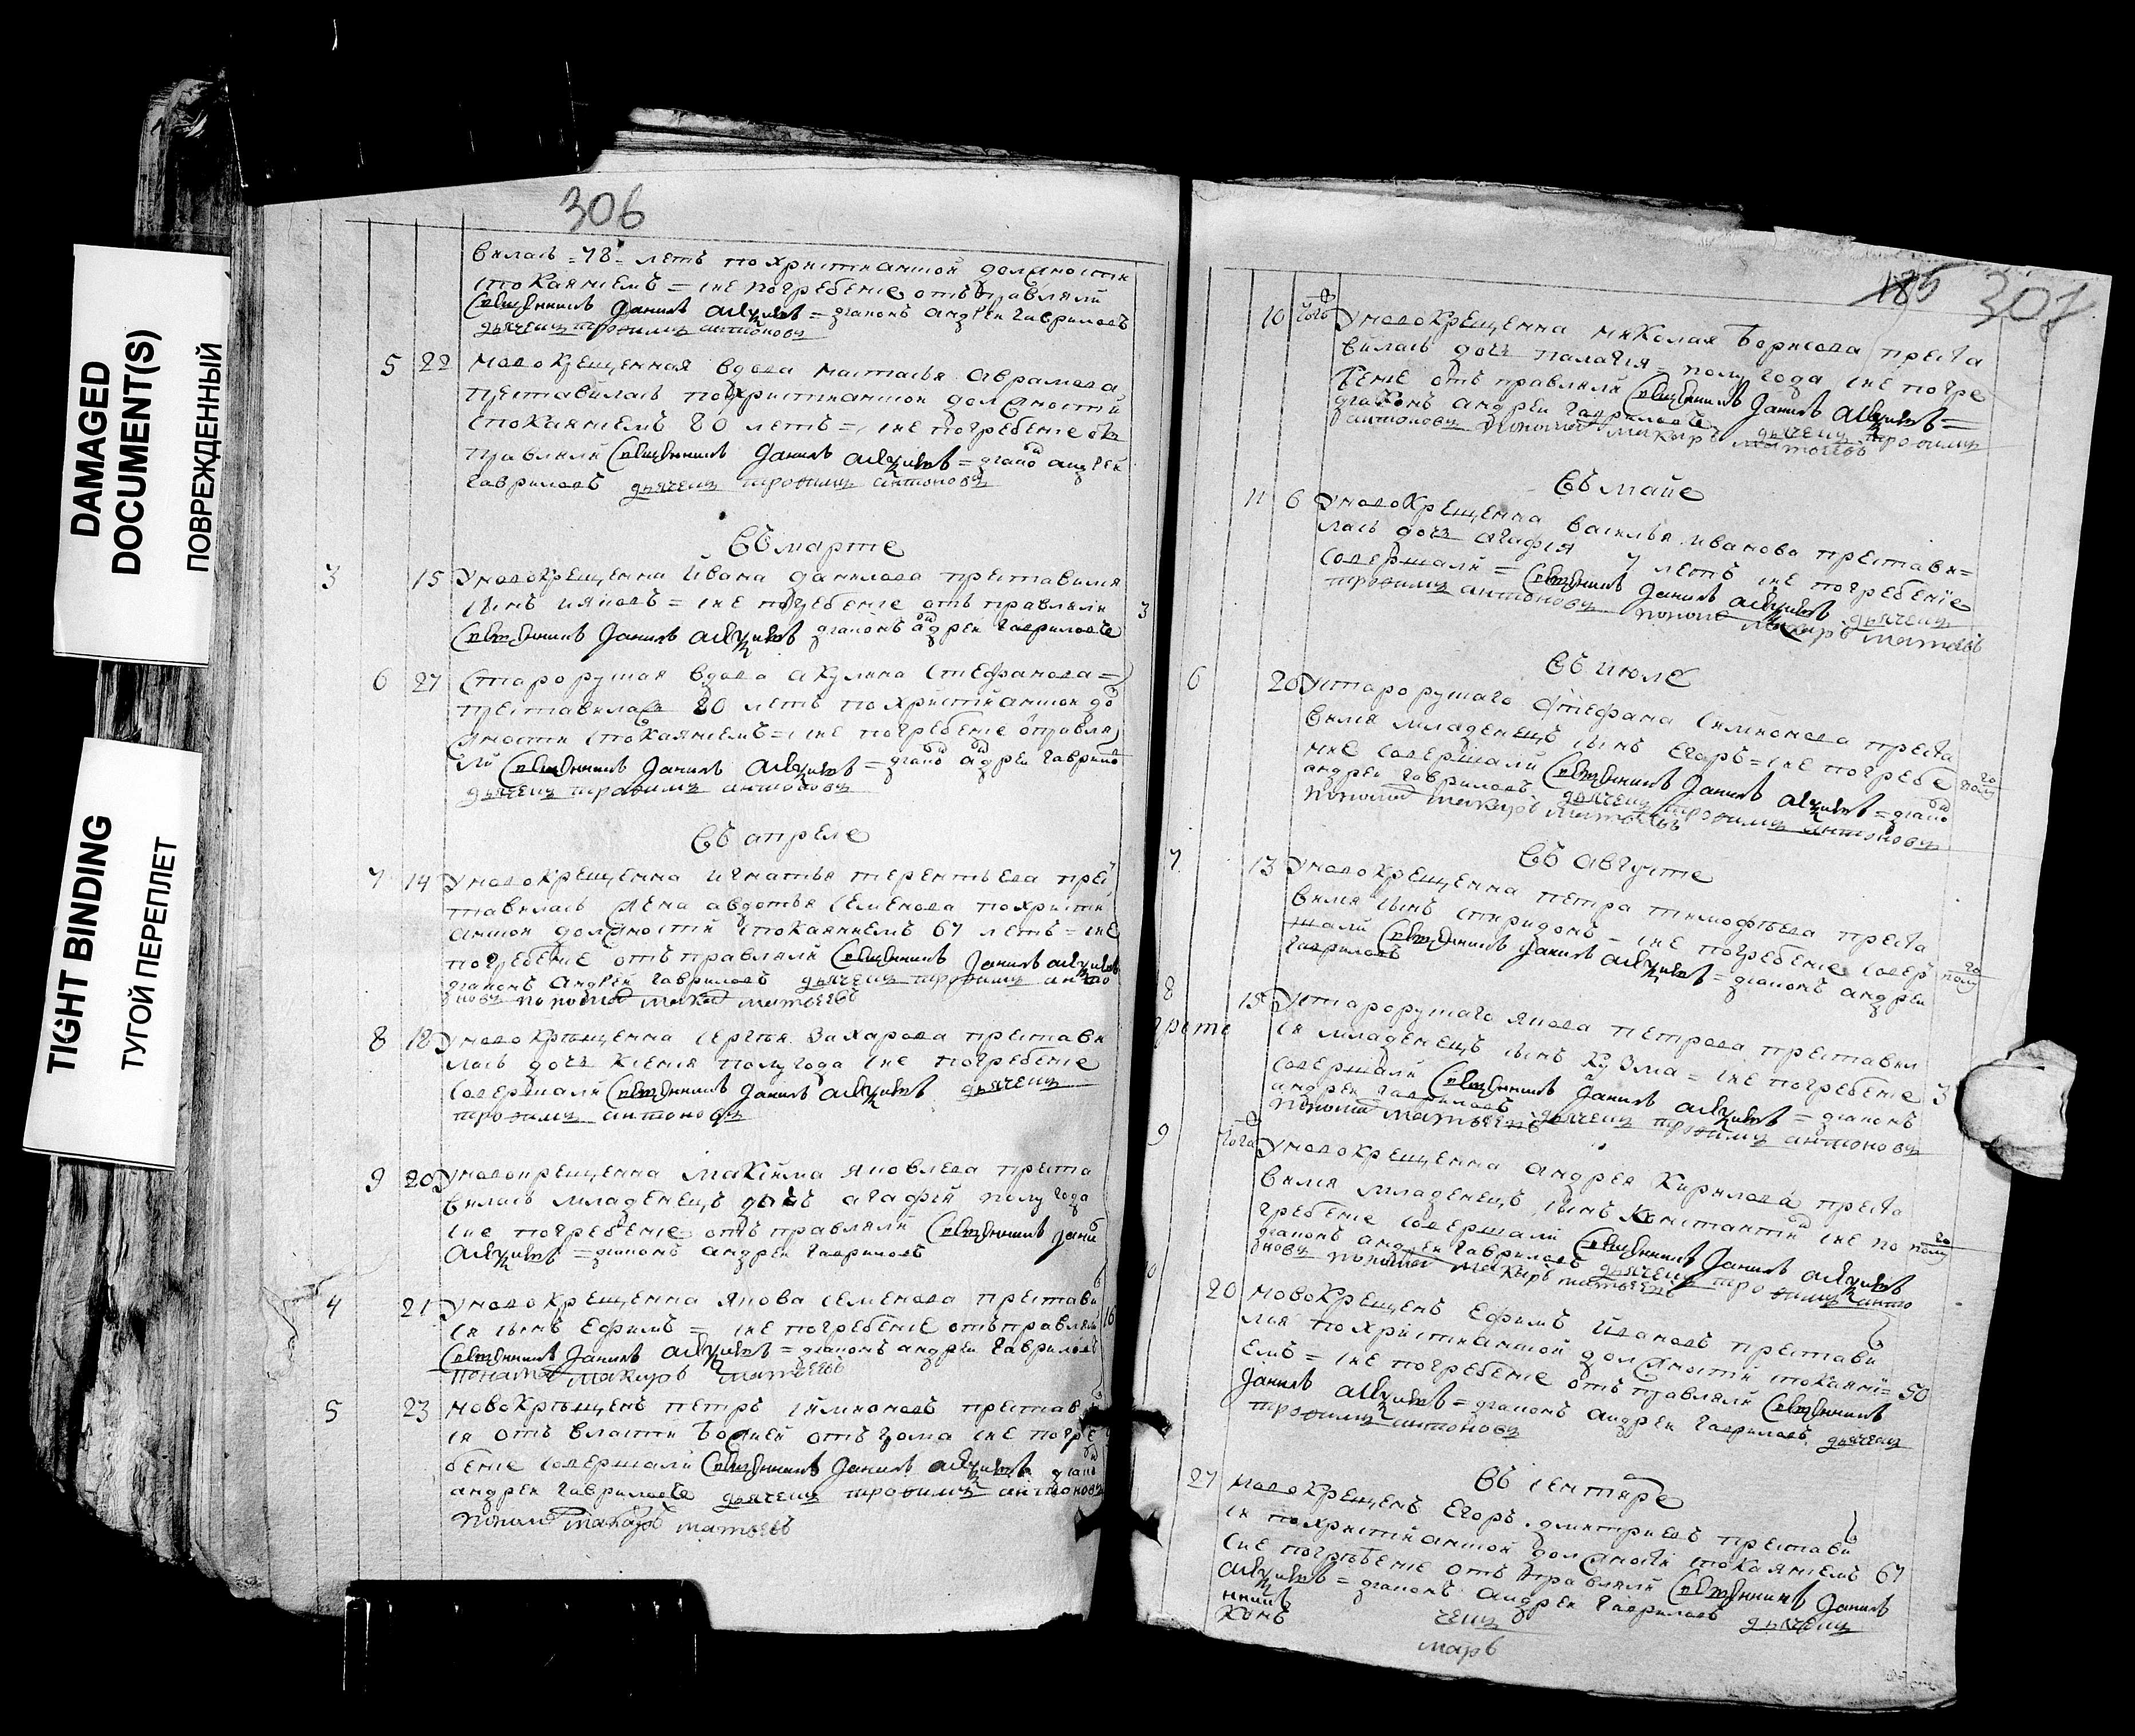 DAMAGED
DOCUMENT(S)
ПОВРЕЖДЕННЫЙ
TIGHT BINDING
ТУГОЙ ПЕРЕПЛЕТ
306
вилась = 78 = летъ по христианшой должности
спокаяниемъ = ея погребение отъправляли
Священникъ Данилъ = диаконъ андреи гавриловъ
дьячецъ трофимъ антоновъ
5 22 новокрещенная вдова настасья аврамова
преставилась похристианшои должности
спокаяниемъ 80 летъ = ея погребение от
правляли Священникъ Данилъ = диако андреи
гавриловъ дьячецъ трофимъ антоновъ
Въ марте
3 15 У новокрещенна Ивана данилова преставился
сынъ = ея погребение отъ правляли 3
Священникъ Данилъ диаконъ адреи гавриловъ
6 27 Старорушая вдова акулина Стефанова =
преставилась 80 летъ по христианшои до
лжности спокаяниемъ = ея погребение оправля
ли Священникъ Данилъ = диако адреи гаврило
дьячецъ трофимъ антоновъ
Въ апреле
7 14 У новокрещенна игнатья терентьева прес
тавилась жена авдотья семенова похристи
аншои должности спокаяниемъ 67 летъ = ея
погребение отъправляли Священникъ Данилъ
диаконъ андреи гавриловъ дьячецъ трофимъ анто
новъ пономар макар матвеевъ
8 18 У новокрещенна сергья Захарова престави
лась дочь ксения полугода ея погребение
совершали Священникъ Данилъ дьячецъ
трофимъ антоновъ
9 20 У новокрещенна Максима Яковлева преста
вилась младенецъ дочь агафия полу года
ея погребение отъ правляли Священникъ Дани
= диаконъ андреи гавриловъ
4 21 У новокрещенна Якова семенова престави
ся сынъ Ефимъ = ея погребение отъправляли 16
Священникъ Данилъ = диаконъ андреи гавриловъ
понамар макаръ матвеевъ
5 23 новокрещенъ петръ симионовъ престав
ся отъ власти Божией отъ грома ея погре
бение совершали Священникъ Данилъ диако
андреи гавриловъ дьячецъ трофимъ антоновъ
понам макаръ матвеевъ
186 307
10 того У новокрещенна николая Борисова преста
вилась дочь палагия = полугода ея погре
бение отъ правляли Священникъ Данилъ =
диаконъ андреи гавриловъ дьячецъ трофимъ
антоновъ пономар макаръ матвеевъ
Въ майе
11 6 У новокрещенна василья иванова престави =
лась дочь агафия 7 летъ ея погребение
совершали = Священникъ Данилъ дьячецъ
трофимъ антоновъ понома макаръ матвеевъ
Въ июле
6 20 У старорушаго Стефана симионова преста
вился младенецъ сынъ Егоръ = ея погребе полуго
ние совершали Священникъ Данилъ = диако
андреи гавриловъ дьячецъ трофимъ антоновъ
пономар макаръ матвеевъ
Въ Августе
7 13 У новокрещенна петра тимофьева преста
вился сынъ спиридонъ = ея погребение совер полуго
шали Священникъ Данилъ = диаконъ андреи
гавриловъ
8 15 У старорушаго якова петрова преставил
ся младенецъ сынъ Кузма = ея погребение 3
совершали Священникъ Данилъ = диаконъ
андреи гавриловъ дьячецъ трофимъ антоновъ
пономар матвеевъ
9 того У новокрещенна андрея Кирилова преста
вился младенецъ сынъ Константи ея по полуго
гребение совершали Священникъ Данилъ
диаконъ андреи гавриловъ дьячецъ трофимъ анто
новъ пономар макаръ матвеевъ
10 20 новокрещенъ Ефимъ Ивановъ престави
лся похристианшой должности спокаяни = 50
емъ = ея погребение отъправляли Священникъ
Данилъ = диаконъ андреи гавриловъ дьячецъ
трофимъ антоновъ
Въ сентяре
27 новокрещенъ Егоръ дмитриевъ престави
ся похристианшой должности спокаяниемъ 67
ея погребение отъ правляли Священникъ Данилъ
= диаконъ андреи гавриловъ дьячецъ